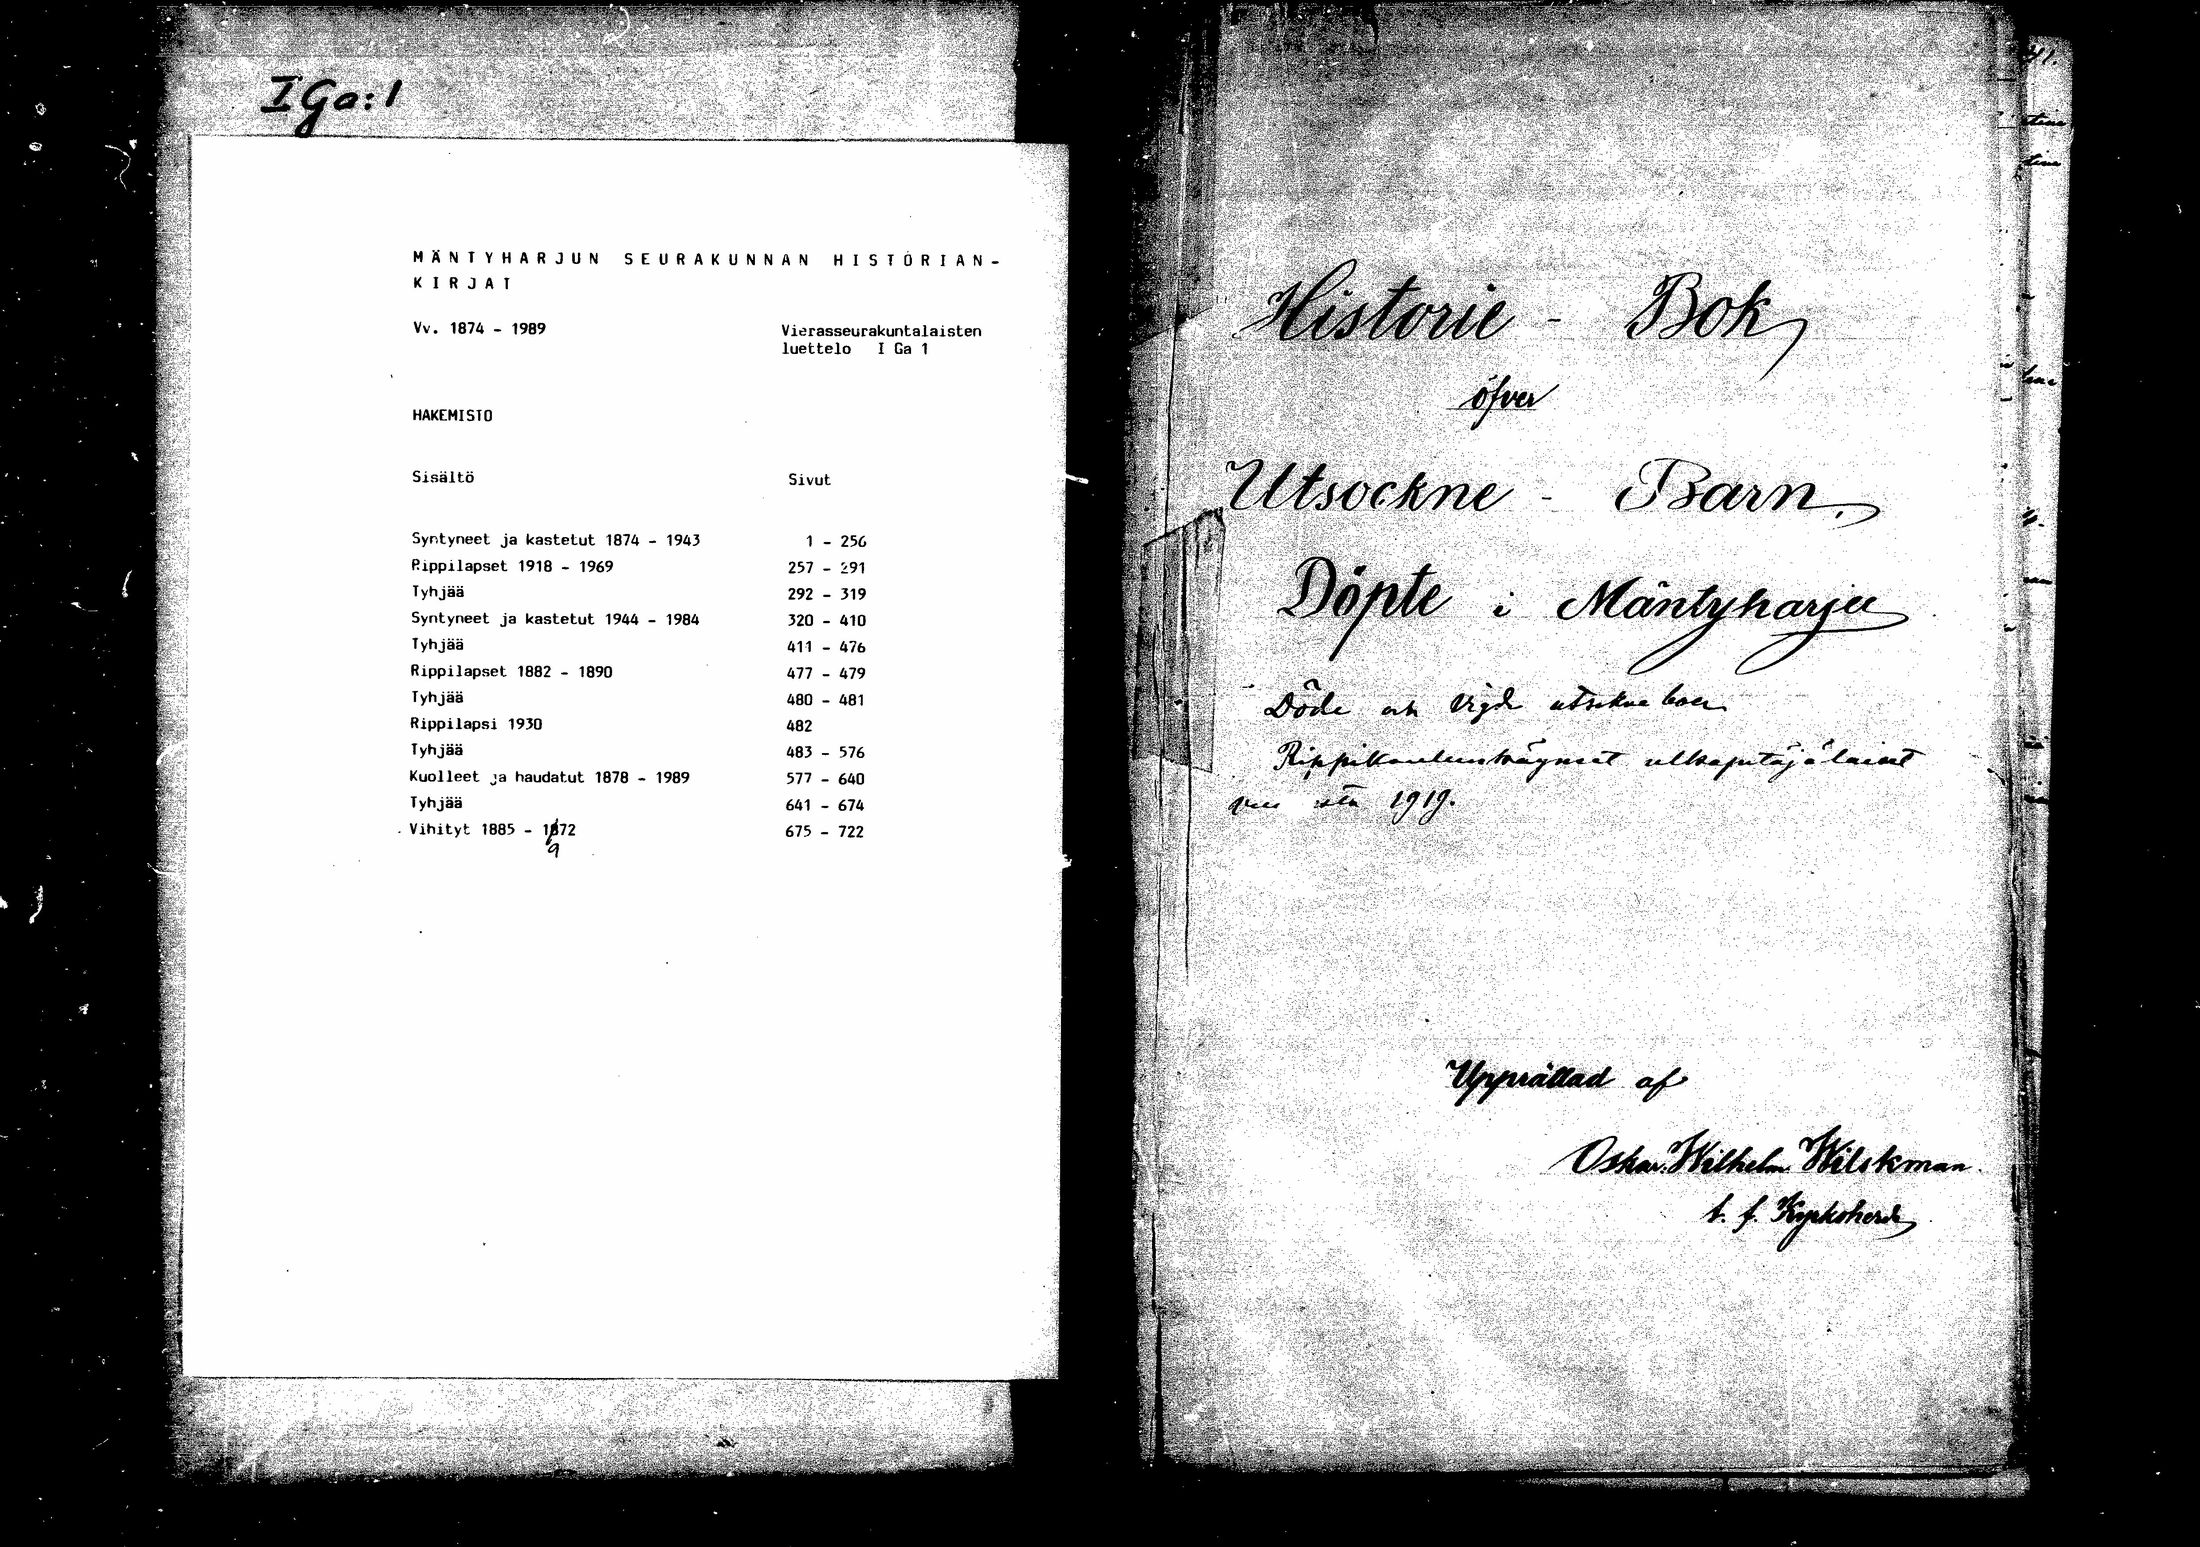 I Ga:1
MÄNTYHARJUN SEURAKUNNAN HISTORIAN-
KIRJAT
Vv. 1874 - 1989
Vierasseurakuntalaisten
luettelo I Ga 1
HAKEMISTO
Sisältö Sivut
Syntyneet ja kastetut 1874 - 1943 1 - 256
Rippilapset 1918 - 1969 257 - 291
Tyhjää 292 - 319
Syntyneet ja kastetut 1944 - 1984 320 - 410
Tyhjää 411 - 476
Rippilapset 1882 - 1890 477 - 479
Tyhjää 480 - 481
Rippilapsi 1930 482
Tyhjää 483 - 576
Kuolleet ja haudatut 1878 - 1989 577 - 640
Tyhjää 641 - 674
Vihityt 1885 - 1872 675 - 722
9
Historie - Bok
öfver
Utsockne - Barn.
Döpte i Mäntyharju
Döde och Vigde utsokne boer
Rippikoulunkäyneet ulkopitäjäläiset
1919.
Upprättad af
Oskar Wilhelm Wilskman.
t. f. Kyrkoherde